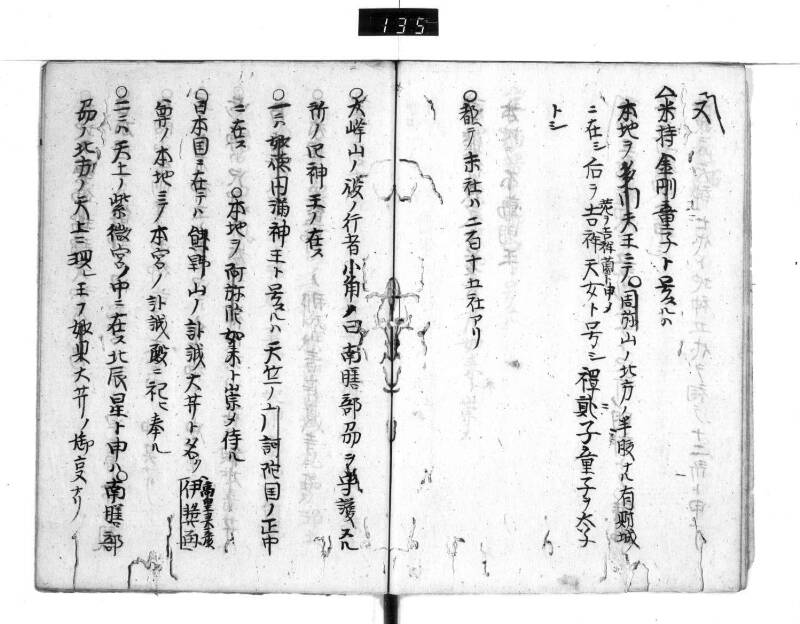 135
又
米持金剛童子ト号スルハ
本地ヲ多門天王ニテ○周旋山ノ北方ノ半腹ナル有財城ト
ニ在シ后ヲ吉祥天女ト号シ禅貳子童子ヲ太子
荒ヲ吉祥蘭ト申メ
トシ
○都テ末社ハ二百十五社アリ
○大峰山ノ役ノ行者小角ノ曰南膳部刕ヲ守護スル
所ノ四神王ノ在ス
○一ニハ娘円満神王ト号スルハ天竺ノ訶陀国ノ正中
ニ在ス ○本地ヲ阿弥陀如来ト崇メ侍ル
○日本国ニ在テハ熊野山ノ訃誠大井ト名ク
伊弉
尊ノ本地ミノ本宮ノ訃誠殿ニ祀ヒ奉ル
○二ニハ天上ノ紫微宮ノ中ニ在ス北辰星ト申ハ○南膳部
刕ノ北方ノ天上ニ現レ王フ妙見大井ノ御亨ナリ